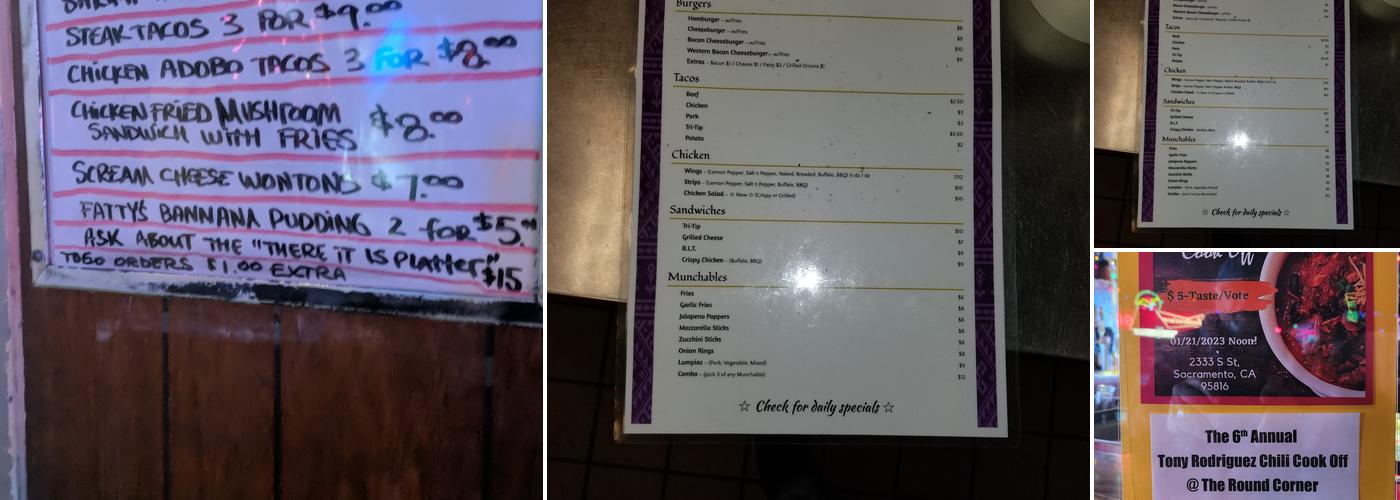 STEAK TACOS 3 FOR $9.00
CHICKEN ADOBO TACOS 3 FOR $8.00
CHICKEN FRIED MUSHROOM
SANDWICH WITH FRIES $8.00
SCREAM CHEESE WONTONS $7.00
FATTY'S BANNANA PUDDING 2 for $5.00
ASK ABOUT THE "THERE IT IS PLATTER" $15
TOGO ORDERS $1.00 EXTRA
Burgers
Hamburger - w/fries $8
Cheeseburger - w/fries $9
Bacon Cheeseburger - w/fries $10
Western Bacon Cheeseburger - w/fries $11
Extras - Bacon $1 / Cheese $1 / Patty $2 / Grilled Onions $1
Tacos
Beef $2.50
Chicken $3
Pork $3
Tri-Tip $3.50
Potato $2
Chicken
Wings - (Lemon Pepper, Salt n Pepper, Naked, Breaded, Buffalo, BBQ) ½ dz / dz 7/12
Strips - (Lemon Pepper, Salt n Pepper, Buffalo, BBQ) $10
Chicken Salad - ☆ New ☆ (Crispy or Grilled) $10
Sandwiches
Tri-Tip $10
Grilled Cheese $7
B.L.T. $9
Crispy Chicken - (Buffalo, BBQ) $9
Munchables
Fries $6
Garlic Fries $8
Jalapeno Poppers $8
Mozzarella Sticks $8
Zucchini Sticks $8
Onion Rings $8
Lumpias - (Pork, Vegetable, Mixed) $9
Combo - (pick 3 of any Munchable) $12
☆ Check for daily specials ☆
Tacos
Beef
Chicken
Pork
Tri-Tip
Potato
Chicken
Wings
Strips
Chicken Salad
Sandwiches
Tri-Tip
Grilled Cheese
B.L.T.
Crispy Chicken
Munchables
Fries
Garlic Fries
Jalapeno Poppers
Mozzarella Sticks
Zucchini Sticks
Onion Rings
Lumpias
Combo
☆ Check for daily specials ☆
Cook Off
$ 5-Taste/Vote
01/21/2023 Noon!
2333 S St,
Sacramento, CA
95816
The 6th Annual
Tony Rodriguez Chili Cook Off
@ The Round Corner